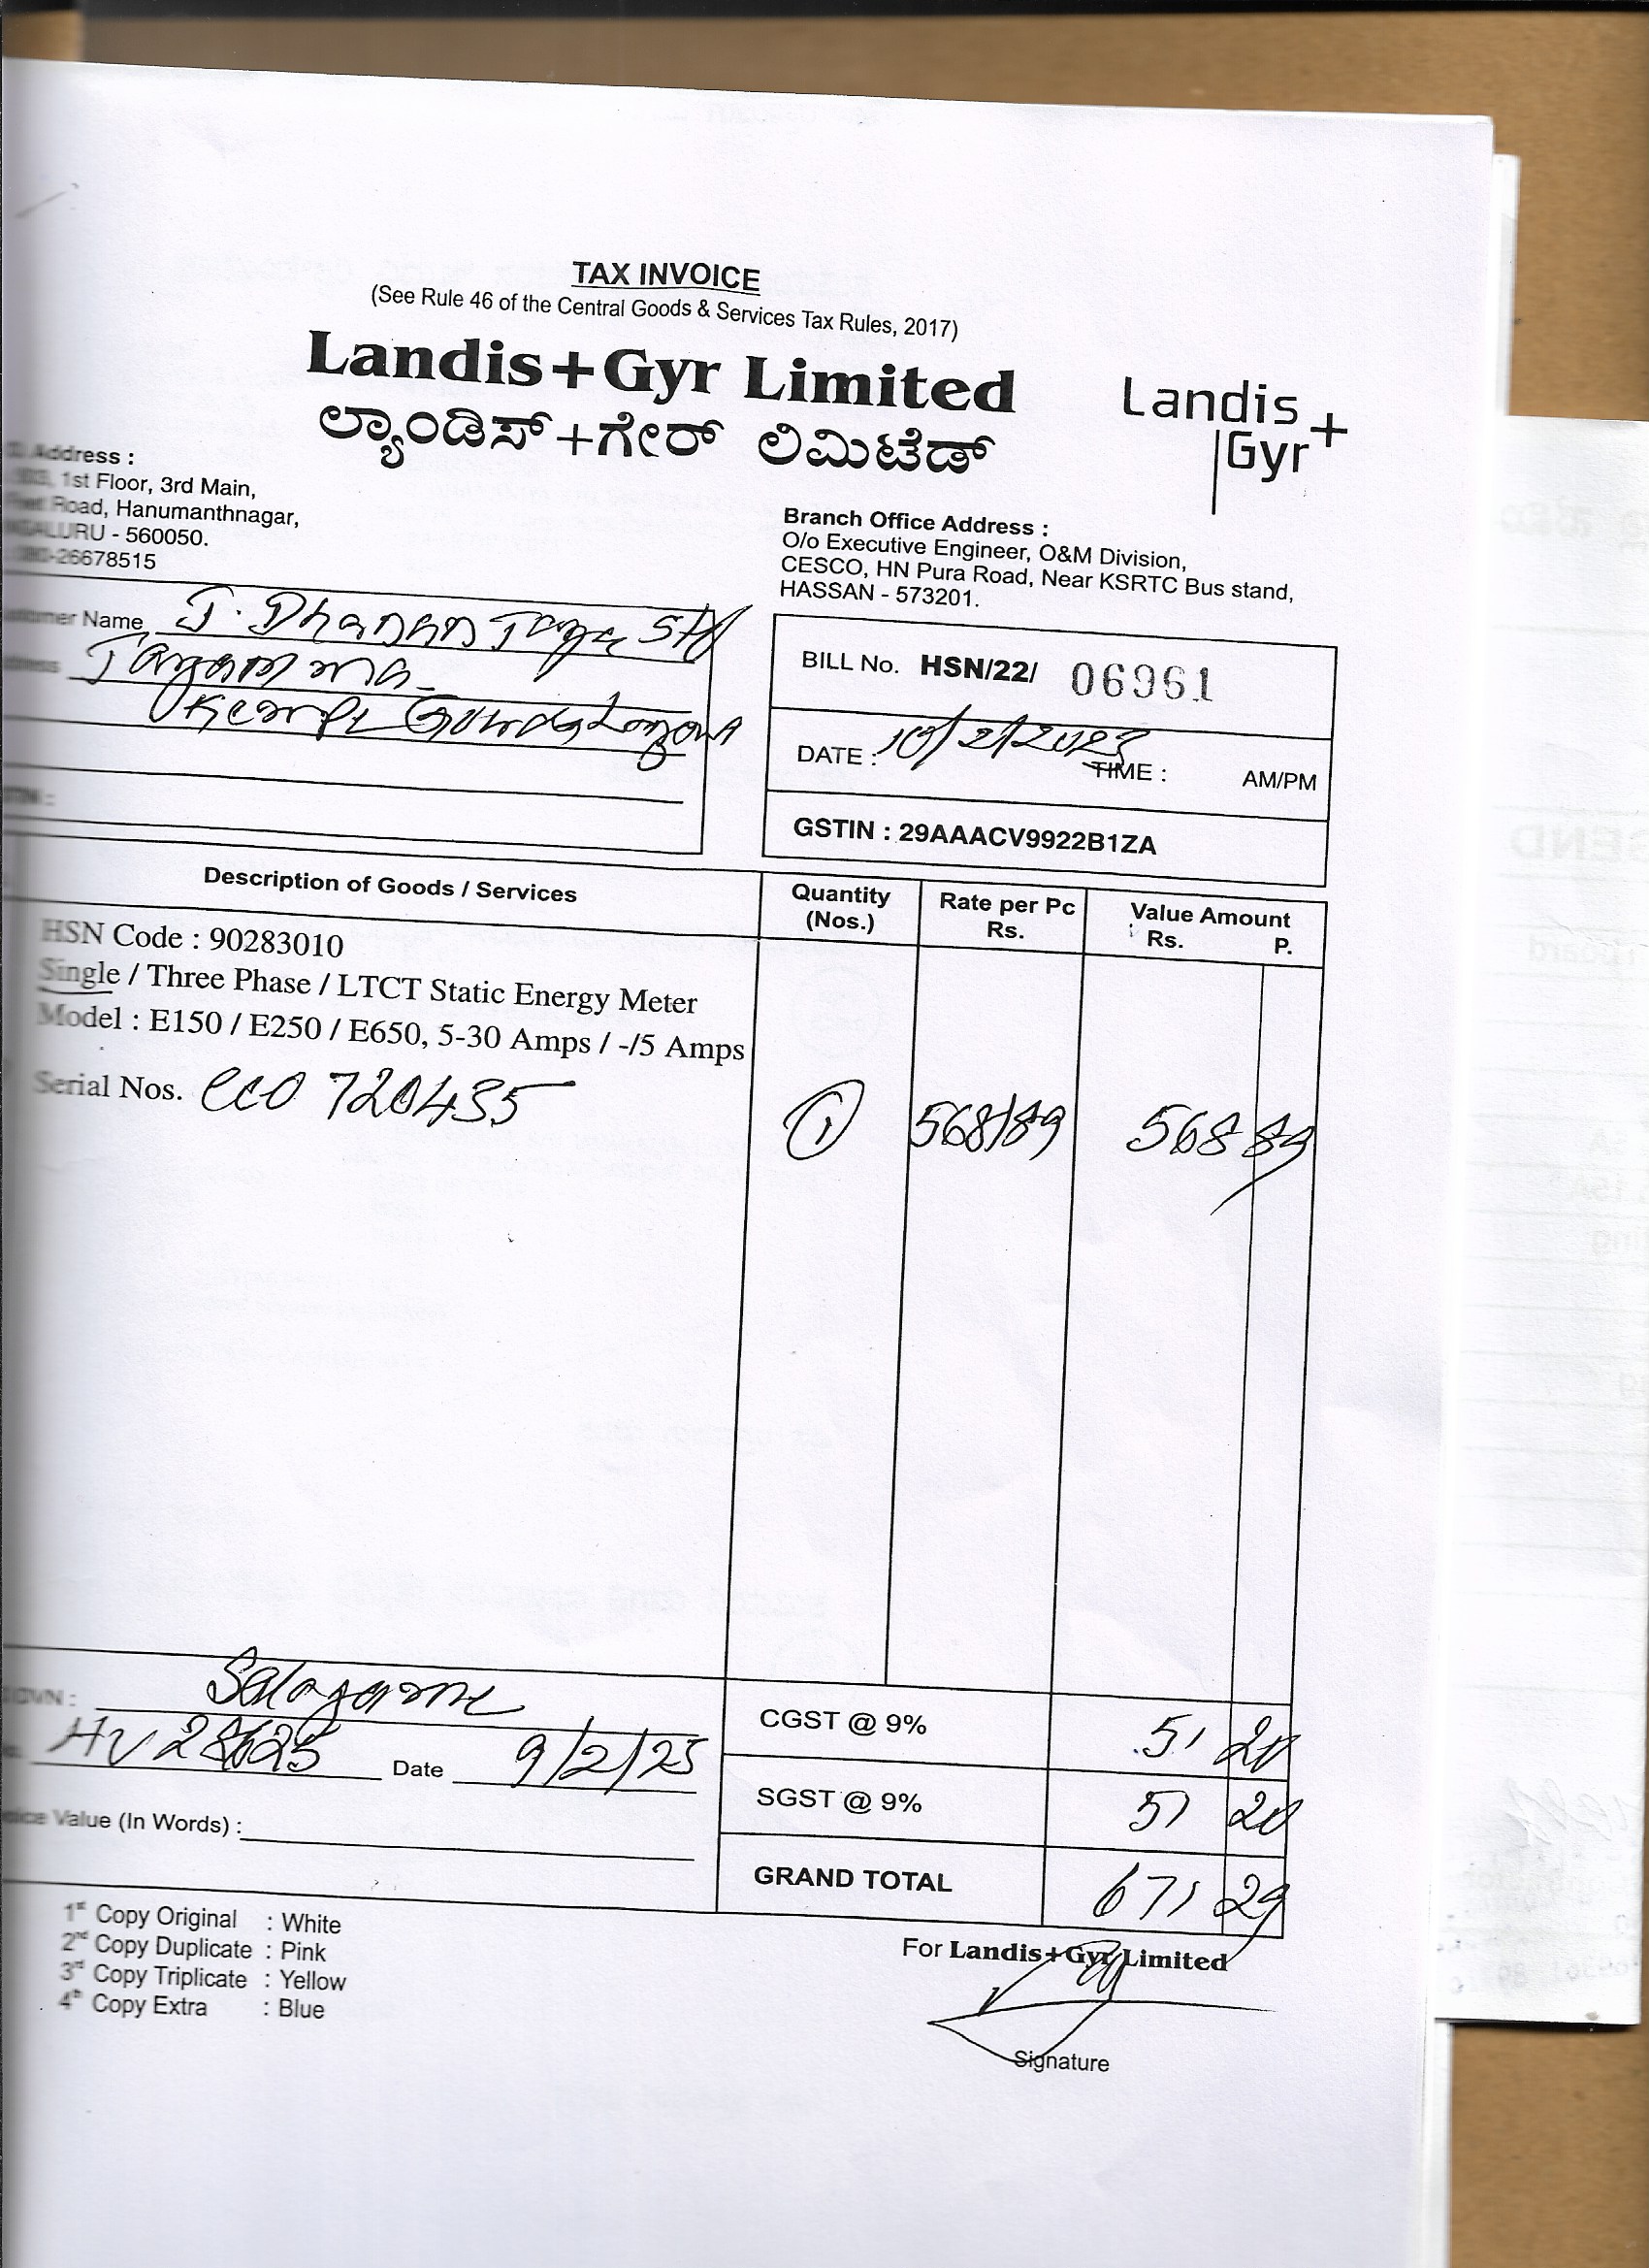 TAX INVOICE
(See Rule 46 of the Central Goods & Services Tax Rules, 2017)
Landis+Gyr Limited
ಲ್ಯಾಂಡಿಸ್+ಗೇರ್ ಲಿಮಿಟೆಡ್
Landis
Gyr+
Address :
1st Floor, 3rd Main,
Road, Hanumanthnagar,
- 560050.
-26678515
Branch Office Address :
O/o Executive Engineer, O&M Division,
CESCO, HN Pura Road, Near KSRTC Bus stand,
HASSAN - 573201.
Name J.
BILL No. HSN/22/ 06961
DATE : 10/2/2023 TIME : AM/PM
GSTIN : 29AAACV9922B1ZA
Description of Goods / Services
Quantity (Nos.)
Rate per Pc Rs.
Value Amount Rs. P.
HSN Code : 90283010
Single / Three Phase / LTCT Static Energy Meter
Model : E150 / E250 / E650, 5-30 Amps / -/5 Amps
Serial Nos. 720435
1 568/89 568 89
Salagame
Date 9/2/23
Value (In Words) :
CGST @ 9% 51 20
SGST @ 9% 51 20
GRAND TOTAL 671 29
1st Copy Original : White
2nd Copy Duplicate : Pink
3rd Copy Triplicate : Yellow
4th Copy Extra : Blue
For Landis+Gyr Limited
Signature